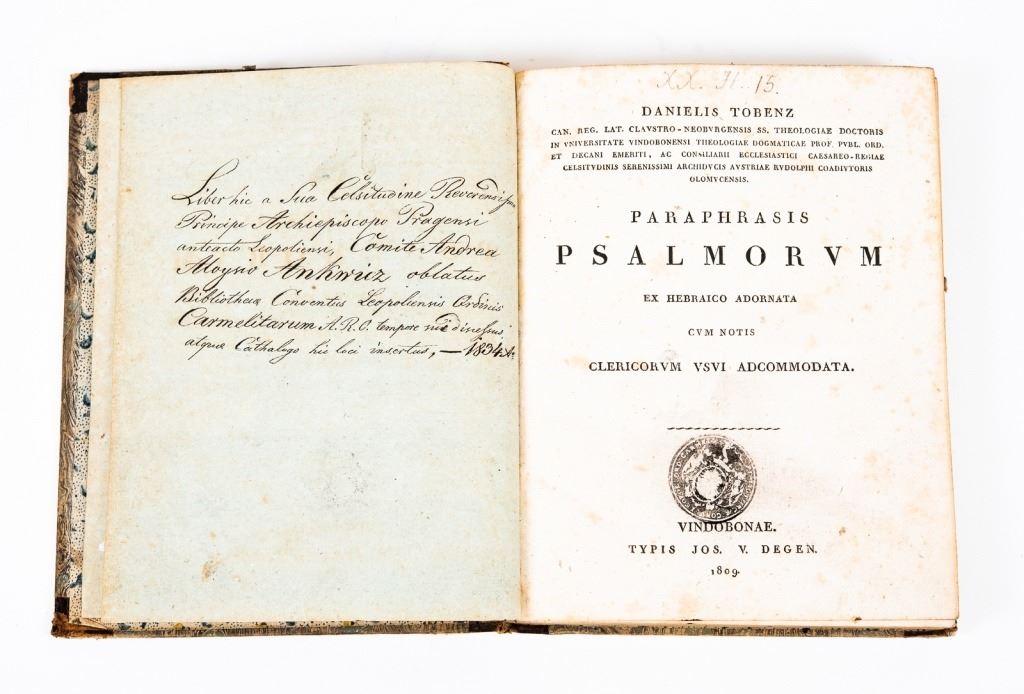 Liber hic a Sua Celsitudine Reverendissimo
Principe Archiepiscopo Pragensi
anteacto Leopoliensi, Comite Andrea
Aloysio Ankwicz oblatus
Bibliothecæ Conventus Leopoliensis Ordinis
Carmelitarum A. R. O. tempore
atque Cathalogo hic loci insertus, — 1834.
XX. H. 15.
DANIELIS TOBENZ
CAN. REG. LAT. CLAVSTRO-NEOBVRGENSIS SS. THEOLOGIAE DOCTORIS
IN VNIVERSITATE VINDOBONENSI THEOLOGIAE DOGMATICAE PROF. PVBL. ORD.
ET DECANI EMERITI, AC CONSILIARII ECCLESIASTICI CAESAREO-REGIAE
CELSITVDINIS SERENISSIMI ARCHIDVCIS AVSTRIAE RVDOLPHI COADIVTORIS
OLOMVCENSIS.
PARAPHRASIS
PSALMORVM
EX HEBRAICO ADORNATA
CVM NOTIS
CLERICORVM VSVI ADCOMMODATA.
VINDOBONAE.
TYPIS JOS. V. DEGEN.
1809.